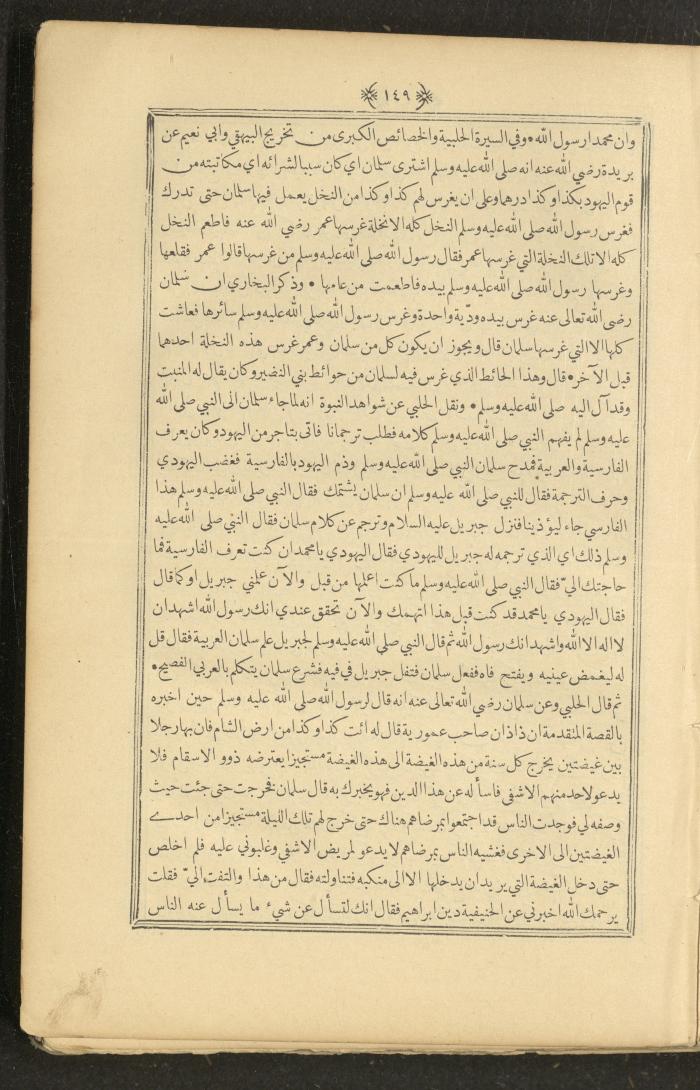 ١٤٩
وان محمدا رسول الله • وفي السيرة الحلبية والخصائص الكبرى من تخريج البيهقي وابي نعيم عن
بريدة رضي الله عنه انه صلى الله عليه وسلم اشترى سلمان اي كان سببا لشرائه اي مكاتبته من
قوم اليهود بكذا وكذا درهما وعلى ان يغرس لهم كذا وكذا من النخل يعمل فيها سلمان حتى تدرك
فغرس رسول الله صلى الله عليه وسلم النخل كله الا نخلة غرسها عمر رضي الله عنه فاطعم النخل
كله الا تلك النخلة التي غرسها عمر فقال رسول الله صلى الله عليه وسلم من غرسها قالوا عمر فقلعها
وغرسها رسول الله صلى الله عليه وسلم بيده فاطعمت من عامها • وذكر البخاري ان سلمان
رضى الله تعالى عنه غرس بيده وديّة واحدة وغرس رسول الله صلى الله عليه وسلم سائرها فعاشت
كلها الا التي غرسها سلمان قال ويجوز ان يكون كل من سلمان وعمر غرس هذه النخلة احدهما
قبل الآخر • قال وهذا الحائط الذي غرس فيه لسلمان من حوائط بني النضير وكان يقال له المنبت
وقد آل اليه صلى الله عليه وسلم • ونقل الحلبي عن شواهد النبوة انه لما جاء سلمان الى النبي صلى الله
عليه وسلم لم يفهم النبي صلى الله عليه وسلم كلامه فطلب ترجمانا فاتى بتاجر من اليهود وكان يعرف
الفارسية والعربية فمدح سلمان النبي صلى الله عليه وسلم وذم اليهود بالفارسية فغضب اليهودي
وحرف الترجمة فقال للنبي صلى الله عليه وسلم ان سلمان يشتمك فقال النبي صلى الله عليه وسلم هذا
الفارسي جاء ليؤذينا فنزل جبريل عليه السلام وترجم عن كلام سلمان فقال النبي صلى الله عليه
وسلم ذلك اي الذي ترجمه له جبريل لليهودي فقال اليهودي يا محمد ان كنت تعرف الفارسية فما
حاجتك اليّ فقال النبي صلى الله عليه وسلم ما كنت اعلمها من قبل والآن علمني جبريل او كما قال
فقال اليهودي يا محمد قد كنت قبل هذا اتهمك والآن تحقق عندي انك رسول الله اشهد ان
لا اله الا الله واشهد انك رسول الله ثم قال النبي صلى الله عليه وسلم لجبريل علم سلمان العربية فقال قل
له ليغمض عينيه ويفتح فاه ففعل سلمان فتفل جبريل في فيه فشرع سلمان يتكلم بالعربي الفصيح •
ثم قال الحلبي وعن سلمان رضي الله تعالى عنه انه قال لرسول الله صلى الله عليه وسلم حين اخبره
بالقصة المتقدمة ان ذاذان صاحب عمورية قال له ائت كذا وكذا من ارض الشام فان بها رجلا
بين غيضتين يخرج كل سنة من هذه الغيضة الى هذه الغيضة مستجيزا يعترضه ذوو الاسقام فلا
يدعو لاحد منهم الا شفي فاسأله عن هذا الدين فهو يخبرك به قال سلمان فخرجت حتى جئت حيث
وصفه لي فوجدت الناس قد اجتمعوا بمرضاهم هناك حتى خرج لهم تلك الليلة مستجيزا من احدے
الغيضتين الى الاخرى فغشيه الناس بمرضاهم لا يدعو لمريض الا شفي وغلبوني عليه فلم اخلص
حتى دخل الغيضة التي يريد ان يدخلها الا الى منكبه فتناولته فقال من هذا والتفت اليّ فقلت
يرحمك الله اخبرني عن الحنيفية دين ابراهيم فقال انك لتسأل عن شيء ما يسأل عنه الناس